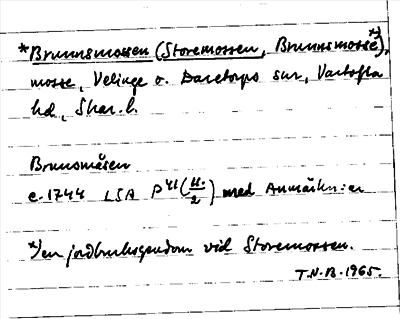 *Brunnsmossen (Storemossen, Brunnsmosse*)),
mosse, Velinge o. Daretorps snr, Vartofta
hd, Skar. l.
Brunsmåsen
c. 1744 LSA P 41 (11:/2) med Anmärkn:er
*)en jordbruksegendom vid Storemossen.
T.N.B. 1965.